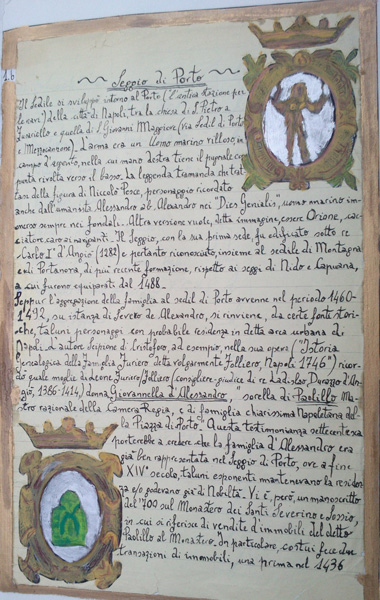 1.6
~~ Seggio di Porto ~~
Il sedile si sviluppò intorno al Porto (l'antica stazione per
le navi) della città di Napoli, tra la chiesa di S. Pietro a
Fusariello e quella di S. Giovanni Maggiore (via Sedil di Porto
e Mezzocanone). L'arma era un Uomo marino villoso, in
campo d'argento, nella cui mano destra tiene il pugnale con
punta rivolta verso il basso. La leggenda tramanda che trat
tasi della figura di Niccolò Pesce, personaggio ricordato
anche dall'umanista Alessandro ab Alexandro nei "Dies Genialis", uomo marino im
merso sempre nei fondali. Altra versione vuole, detta immagine, essere Orione, cac
ciatore, caro ai naviganti. Il Seggio, con la sua prima sede, fu edificato sotto re
Carlo I° d'Angiò (1282) e pertanto riconosciuto, insieme al sedile di Montagna
e di Portanova, di più recente formazione, rispetto ai seggi di Nido e Capuana,
a cui furono equiparati dal 1488.
Seppur l'aggregazione della famiglia al sedil di Porto avvenne nel periodo 1460-
1492, su istanza di Severo de Alexandro, si rinviene, da certe fonti stori-
che, taluni personaggi con probabile residenza in detta area urbana di
Napoli. L'autore Scipione di Cristoforo, ad esempio, nella sua opera ("Istoria
Genealogica della Famiglia Iuniero detta volgarmente Folliero, Napoli 1746") ricor
dò quale moglie di Leone Iuniero/Folliero (consigliere, giudice di re Ladislao Durazzo d'An
giò, 1386-1414) donna Giovannella d'Alessandro, sorella di Paolillo Ma
stro razionale della Camera Regia, e di famiglia chiarissima Napoletana del
la Piazza di Porto. Questa testimonianza settecentesca
porterebbe a credere che la famiglia d'Alessandro era
già ben rappresentata nel Seggio di Porto, ove a fine
XIV° secolo, taluni esponenti mantenevano la residen
za e/o godevano già di Nobiltà. Vi è, però, un manoscritto
del '700 sul Monastero dei Santi Severino e Sossio,
in cui si riferisce di vendite d'immobili del detto
Paolillo al Monastero. In particolare, costui fece due
transazioni di immobili, una prima nel 1436